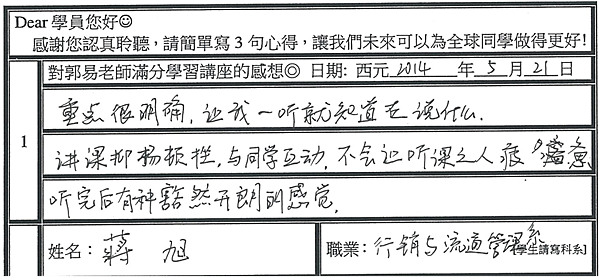 Dear 學員您好☺
感謝您認真聆聽，請簡單寫 3 句心得，讓我們未來可以為全球同學做得更好!
對郭易老師滿分學習講座的感想◎ 日期: 西元 2014 年 5 月 21 日
1
重点很明确，让我一听就知道在说什么.
讲课抑扬顿挫，与同学互动，不会让听课之人疲惫
听完后有种豁然开朗的感觉.
姓名： 蒋旭
職業：行销与流通管理系 [學生請寫科系]